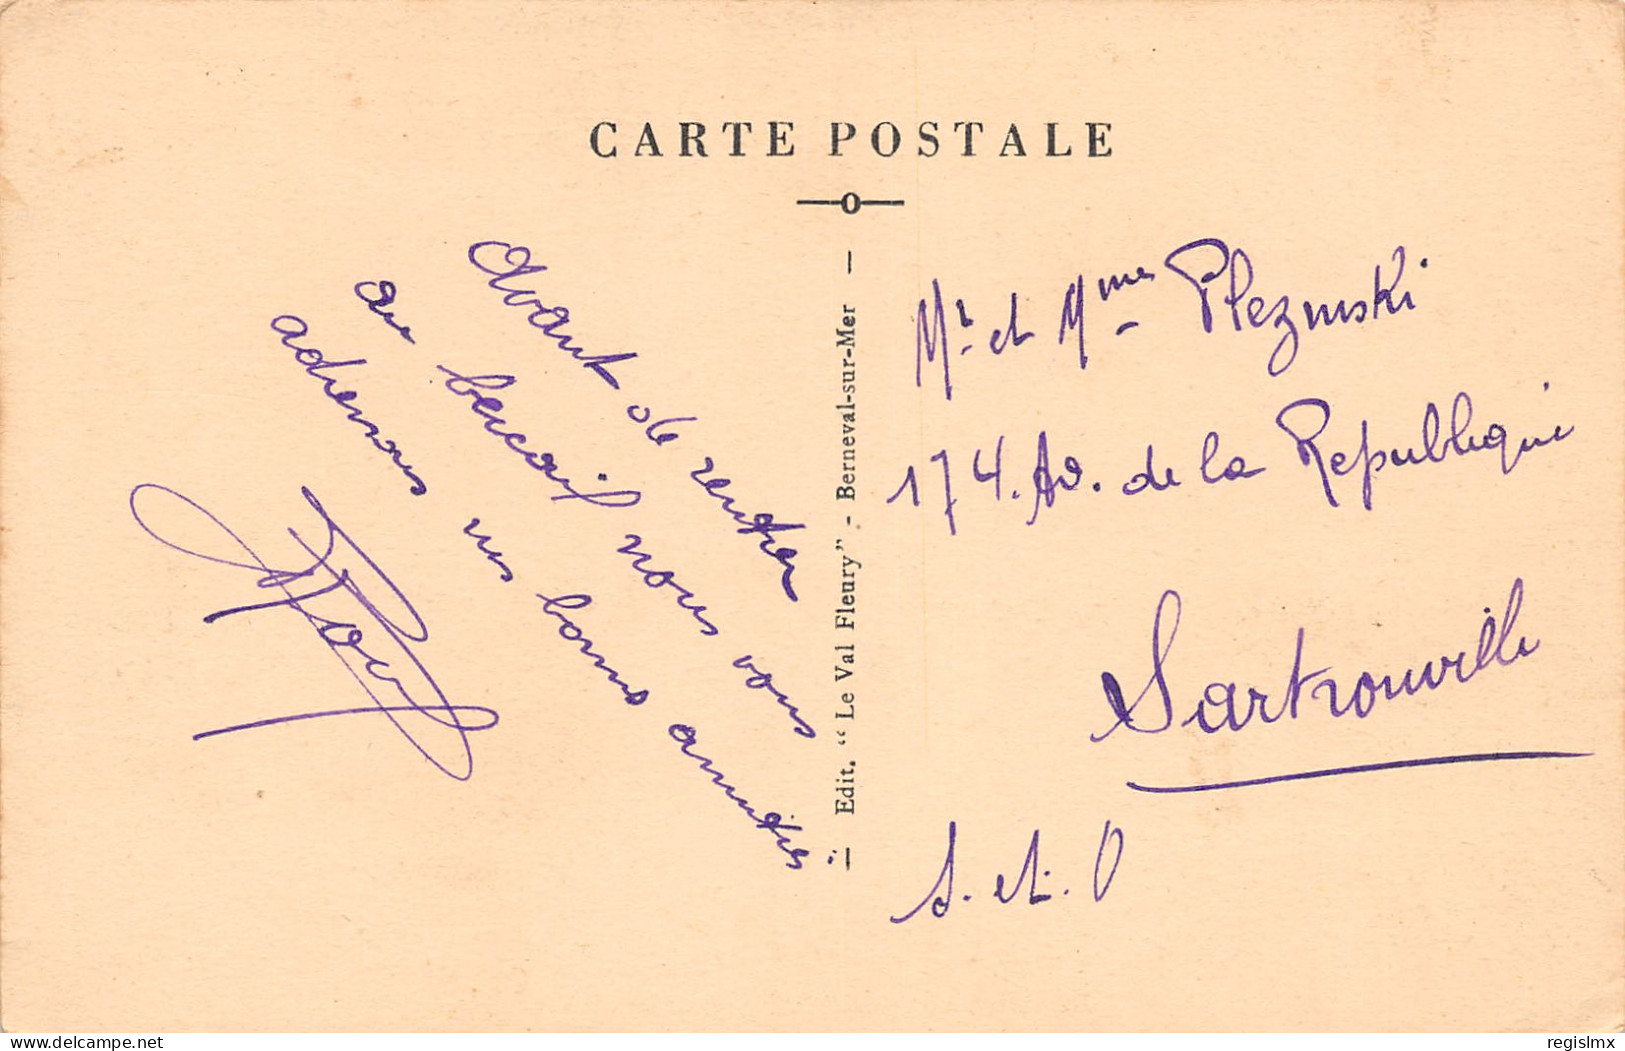 CARTE POSTALE
Avant de rentrer
au bercail nous vous
adressons nos bonnes amitiés.
— Edit. “Le Val Fleury” - Berneval-sur-Mer —
Mr et Mme Plezinski
174. Av. de la Republique
Sartrouville
S. et. O
delcampe.net
regislmx